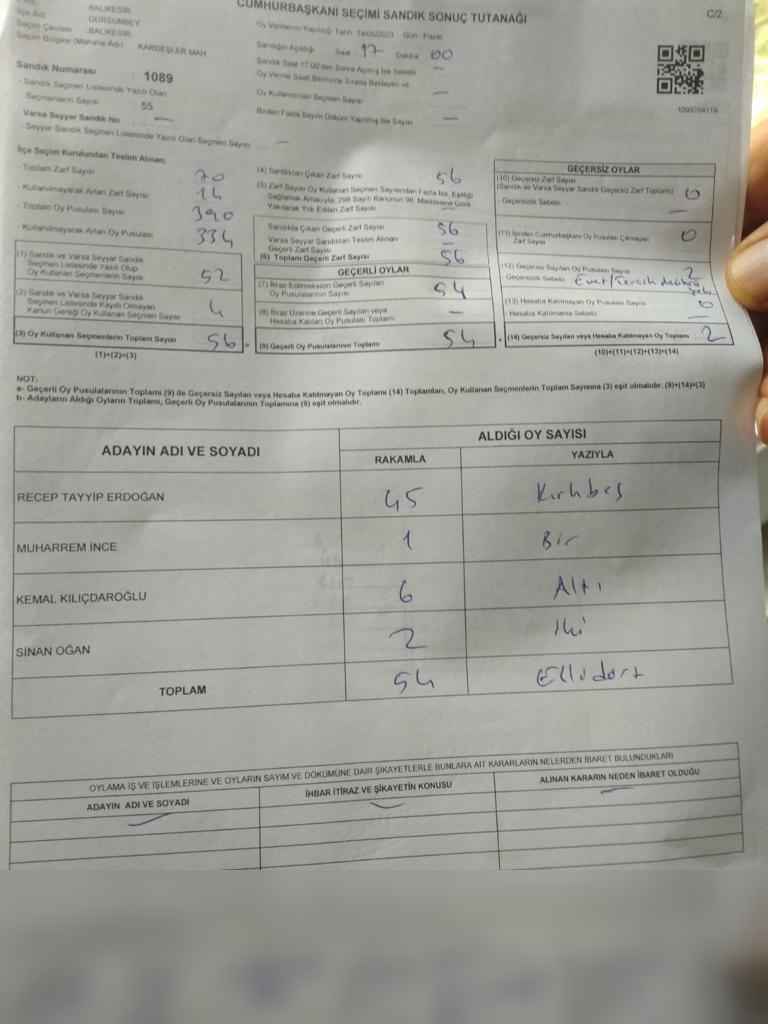 CUMHURBAŞKANI SEÇİMİ SANDIK SONUÇ TUTANAĞI
C/2
BALIKESİR
İlçe Adı DURSUNBEY
Seçim Çevresi BALIKESİR
Seçim Bölgesi (Muhtarlık Adı) KARDEŞLER MAH
Sandık Numarası 1089
- Sandık Seçmen Listesinde Yazılı Olan
Seçmenlerin Sayısı 55
Varsa Seyyar Sandık No —
- Seyyar Sandık Seçmen Listesinde Yazılı Olan Seçmen Sayısı —
Oy Verilmenin Yapıldığı Tarih Gün Pazar
Sandığın Açıldığı Saat 17 Dakika 00
—
Oy Verme Saat Bitiminde Sırada Bekleyen ve
Oy Kullanan Seçmen Sayısı —
Birden Fazla Sayım Döküm Yapılmış İse Sayısı —
İlçe Seçim Kurulundan Teslim Alınan;
- Toplam Zarf Sayısı 70
- Kullanılmayarak Artan Zarf Sayısı 14
- Toplam Oy Pusulası Sayısı 390
- Kullanılmayarak Artan Oy Pusulası 334
(1) Sandık ve Varsa Seyyar Sandık
Seçmen Listesinde Yazılı Olup
Oy Kullanan Seçmenlerin Sayısı 52
(2) Sandık ve Varsa Seyyar Sandık
Seçmen Listesinde Kayıtlı Olmayan
Kanun Gereği Oy Kullanan Seçmen Sayısı 4
(3) Oy Kullanan Seçmenlerin Toplam Sayısı 56
(1)+(2)=(3)
(4) Sandıktan Çıkan Zarf Sayısı 56
(5) Zarf Sayısı Oy Kullanan Seçmen Sayısından Fazla İse, Eşitliği
Sağlamak Amacıyla, 298 Sayılı Kanunun 98. Maddesine Göre
Yakılarak Yok Edilen Zarf Sayısı —
Sandıkta Çıkan Geçerli Zarf Sayısı 56
Varsa Seyyar Sandıktan Teslim Alınan
Geçerli Zarf Sayısı —
(6) Toplam Geçerli Zarf Sayısı 56
GEÇERLİ OYLAR
(7) İtiraz Edilmeksizin Geçerli Sayılan
Oy Pusulasının Sayısı 54
(8) İtiraz Üzerine Geçerli Sayılan veya
Hesaba Katılan Oy Pusulası Toplamı —
(9) Geçerli Oy Pusulalarının Toplamı 54
GEÇERSİZ OYLAR
(10) Geçersiz Zarf Sayısı
(Sandık ve Varsa Seyyar Sandık Geçersiz Zarf Toplamı) 0
Geçersizlik Sebebi: —
(11) İçinden Cumhurbaşkanı Oy Pusulası Çıkmayan
Zarf Sayısı 0
(12) Geçersiz Sayılan Oy Pusulası Sayısı 2
Geçersizlik Sebebi: Evet/Tercih
(13) Hesaba Katılmayan Oy Pusulası Sayısı 0
Hesaba Katılmama Sebebi: —
(14) Geçersiz Sayılan veya Hesaba Katılmayan Oy Toplamı 2
(10)+(11)+(12)+(13)=(14)
NOT:
a- Geçerli Oy Pusulalarının Toplamı (9) ile Geçersiz Sayılan veya Hesaba Katılmayan Oy Toplamı (14) Toplamları, Oy Kullanan Seçmenlerin Toplam Sayısına (3) eşit olmalıdır. (9)+(14)=(3)
b- Adayların Aldığı Oyların Toplamı, Geçerli Oy Pusulalarının Toplamına (9) eşit olmalıdır.
ADAYIN ADI VE SOYADI ALDIĞI OY SAYISI
RAKAMLA YAZIYLA
RECEP TAYYİP ERDOĞAN 45 Kırkbeş
MUHARREM İNCE 1 Bir
KEMAL KILIÇDAROĞLU 6 Altı
SİNAN OĞAN 2 İki
TOPLAM 54 Ellidört
OYLAMA İŞ VE İŞLEMLERİNE VE OYLARIN SAYIM VE DÖKÜMÜNE DAİR ŞİKAYETLERLE BUNLARA AİT KARARLARIN NELERDEN İBARET BULUNDUKLARI
ADAYIN ADI VE SOYADI İHBAR İTİRAZ VE ŞİKAYETİN KONUSU ALINAN KARARIN NEDEN İBARET OLDUĞU